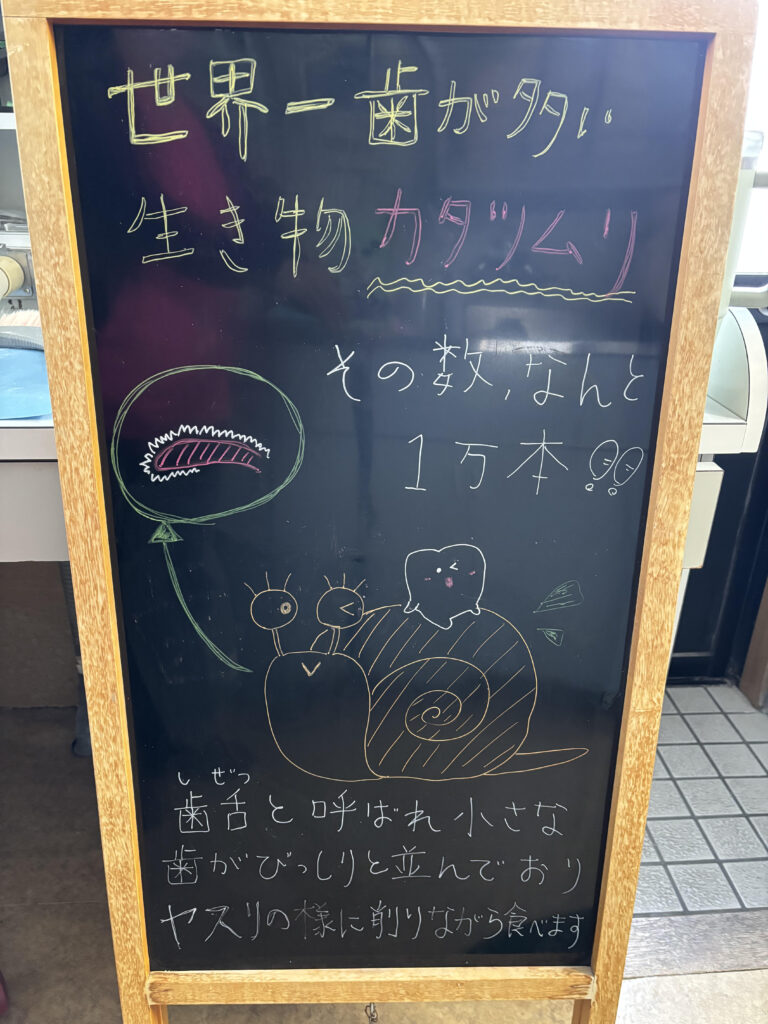 世界一歯が多い
生き物カタツムリ
その数、なんと
1万本!!
しぜつ
歯舌と呼ばれ小さな
歯がびっしりと並んでおり
ヤスリの様に削りながら食べます